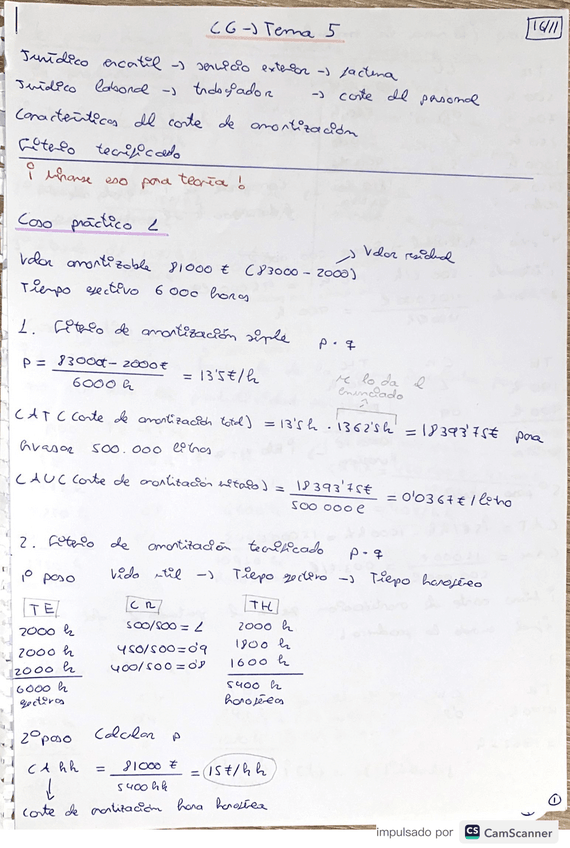 CG → Tema 5
16/11
Jurídico ercatil → servicio exterior → factura
Jurídico laboral → trabajador → coste del personal
Características del coste de amortización
Criterio tecnificado
¡ Mirarse eso para teoría !
Caso práctico 1
→ Valor residual
Valor amortizable 81000 € (83000 - 2000)
Tiempo efectivo 6000 horas
1. Criterio de amortización simple p · q
P = 83000€ - 2000€ / 6000 h = 13'5€/h
se lo da el
enunciado
CATC (coste de amortización total) = 13'5 h · 1362'5h = 18393'75€ para
envasar 500.000 litros
CAUC (coste de amortización unitario) = 18393'75€ / 500 000 l = 0'0367€/litro
2. Criterio de amortización tecnificado p · q
1º paso Vida útil → Tiempo efectivo → Tiempo homogéneo
TE CR TH
2000 h 500/500 = 1 2000 h
2000 h 450/500 = 0'9 1800 h
2000 h 400/500 = 0'8 1600 h
6000 h 5400 h
efectivos homogéneos
2º paso Calcular p
CA hh = 81000 € / 5400 hh = 15€/hh
↓
coste de amortización hora homogénea
1
impulsado por CS CamScanner